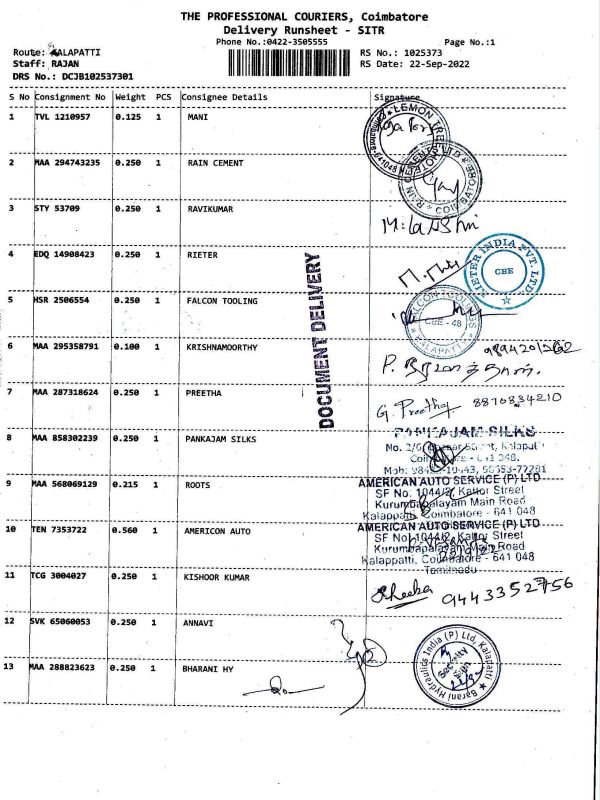 THE PROFESSIONAL COURIERS, Coimbatore
Delivery Runsheet - SITR
Phone No.:0422-3505555 Page No.:1
Route: KALAPATTI RS No.: 1025373
Staff: RAJAN RS Date: 22-Sep-2022
DRS No.: DCJB102537301
S No Consignment No Weight PCS Consignee Details Signature
1 TVL 1210957 0.125 1 MANI
LEMON TREE
2 MAA 294743235 0.250 1 RAIN CEMENT
3 STY 53709 0.250 1 RAVIKUMAR
4 EDQ 14908423 0.250 1 RIETER
RIETER INDIA PVT. LTD
CBE
5 HSR 2506554 0.250 1 FALCON TOOLING
FALCON TOOLINGS
CBE - 48
KALAPATTI
DOCUMENT DELIVERY
6 MAA 295358791 0.100 1 KRISHNAMOORTHY
7 MAA 287318624 0.250 1 PREETHA
G. Preetha 8870834210
8 MAA 858302239 0.250 1 PANKAJAM SILKS
PANKAJAM SILKS
9 MAA 568069129 0.215 1 ROOTS
AMERICAN AUTO SERVICE (P) LTD
SF No. 1044/2 Kattor Street
Kurumbapalayam Main Road
Kalappatti, Coimbatore - 641 048
10 TEN 7353722 0.560 1 AMERICON AUTO
AMERICAN AUTO SERVICE (P) LTD
SF No. 1044/2, Kattor Street
Kurumbapalayam Main Road
Kalappatti, Coimbatore - 641 048
Tamilnadu
11 TCG 3004027 0.250 1 KISHOOR KUMAR
9443352756
12 SVK 65060053 0.250 1 ANNAVI
13 MAA 288823623 0.250 1 BHARANI HY
Barani Hydraulics India (P) Ltd, Kalapatti
Security
Sign